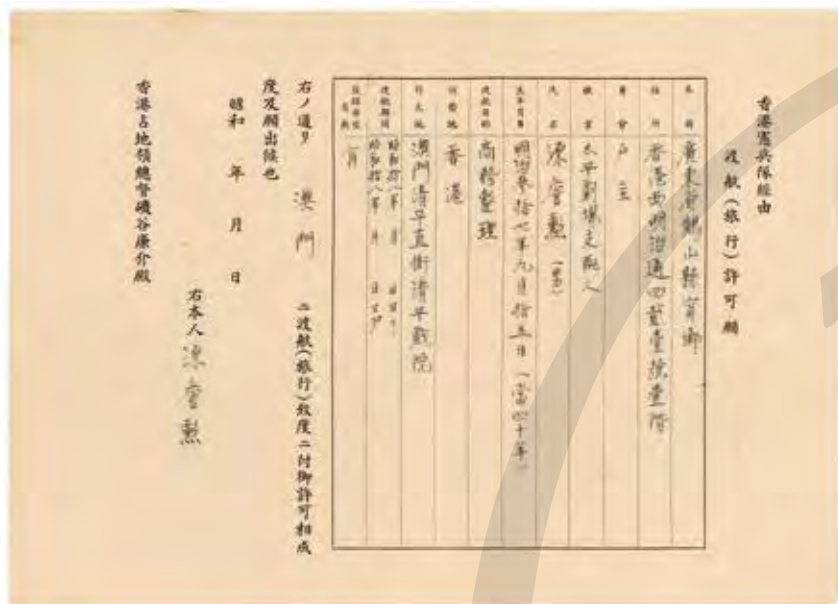 香港憲兵隊経由
渡航(旅行)許可願
本籍 廣東省鶴山縣
住所 香港西明治通四貳壹號壹階
身分 戸主
職業 太平劇場支配人
氏名 源 勲 (男)
生年月日 明治参拾七年九月拾五日 (當四十年)
渡航目的 商務整理
香港
澳門清平直街清平戲院
渡航期間 昭和拾八年 月 日
昭和拾八年 月 日
有無 有
右ノ通リ 澳門 ニ渡航(旅行)致度ニ付御許可相成
度及願出候也
昭和 年 月 日
右本人 源 勲
香港占領地總督磯谷廉介殿